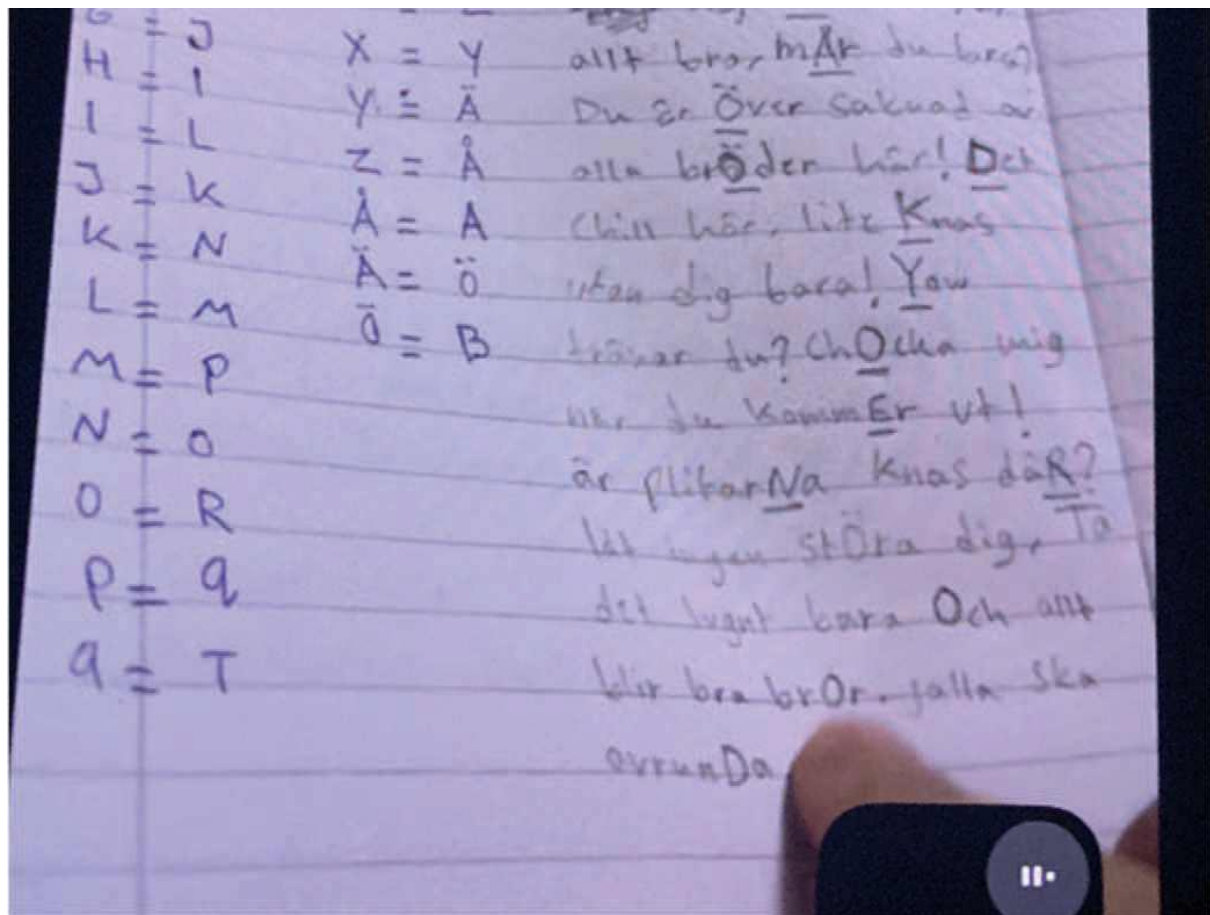 G = J
H = I
I = L
J = K
K = N
L = M
M = P
N = O
O = R
P = q
q = T
X = Y
Y = Ä
Z = Å
Å = A
Ä = Ö
Ö = B
allt bra, mÅr du bra?
Du är Över saknad av
alla brÖder här! Och
Chill här, lite Knas
utan dig bara! Yow
tränar du? ChOcka mig
när du kommEr ut!
är plitarNa knas däR?
låt ingen stÖra dig, Ta
det lugnt bara Och allt
blir bra brOr. jalla ska
avrunDa